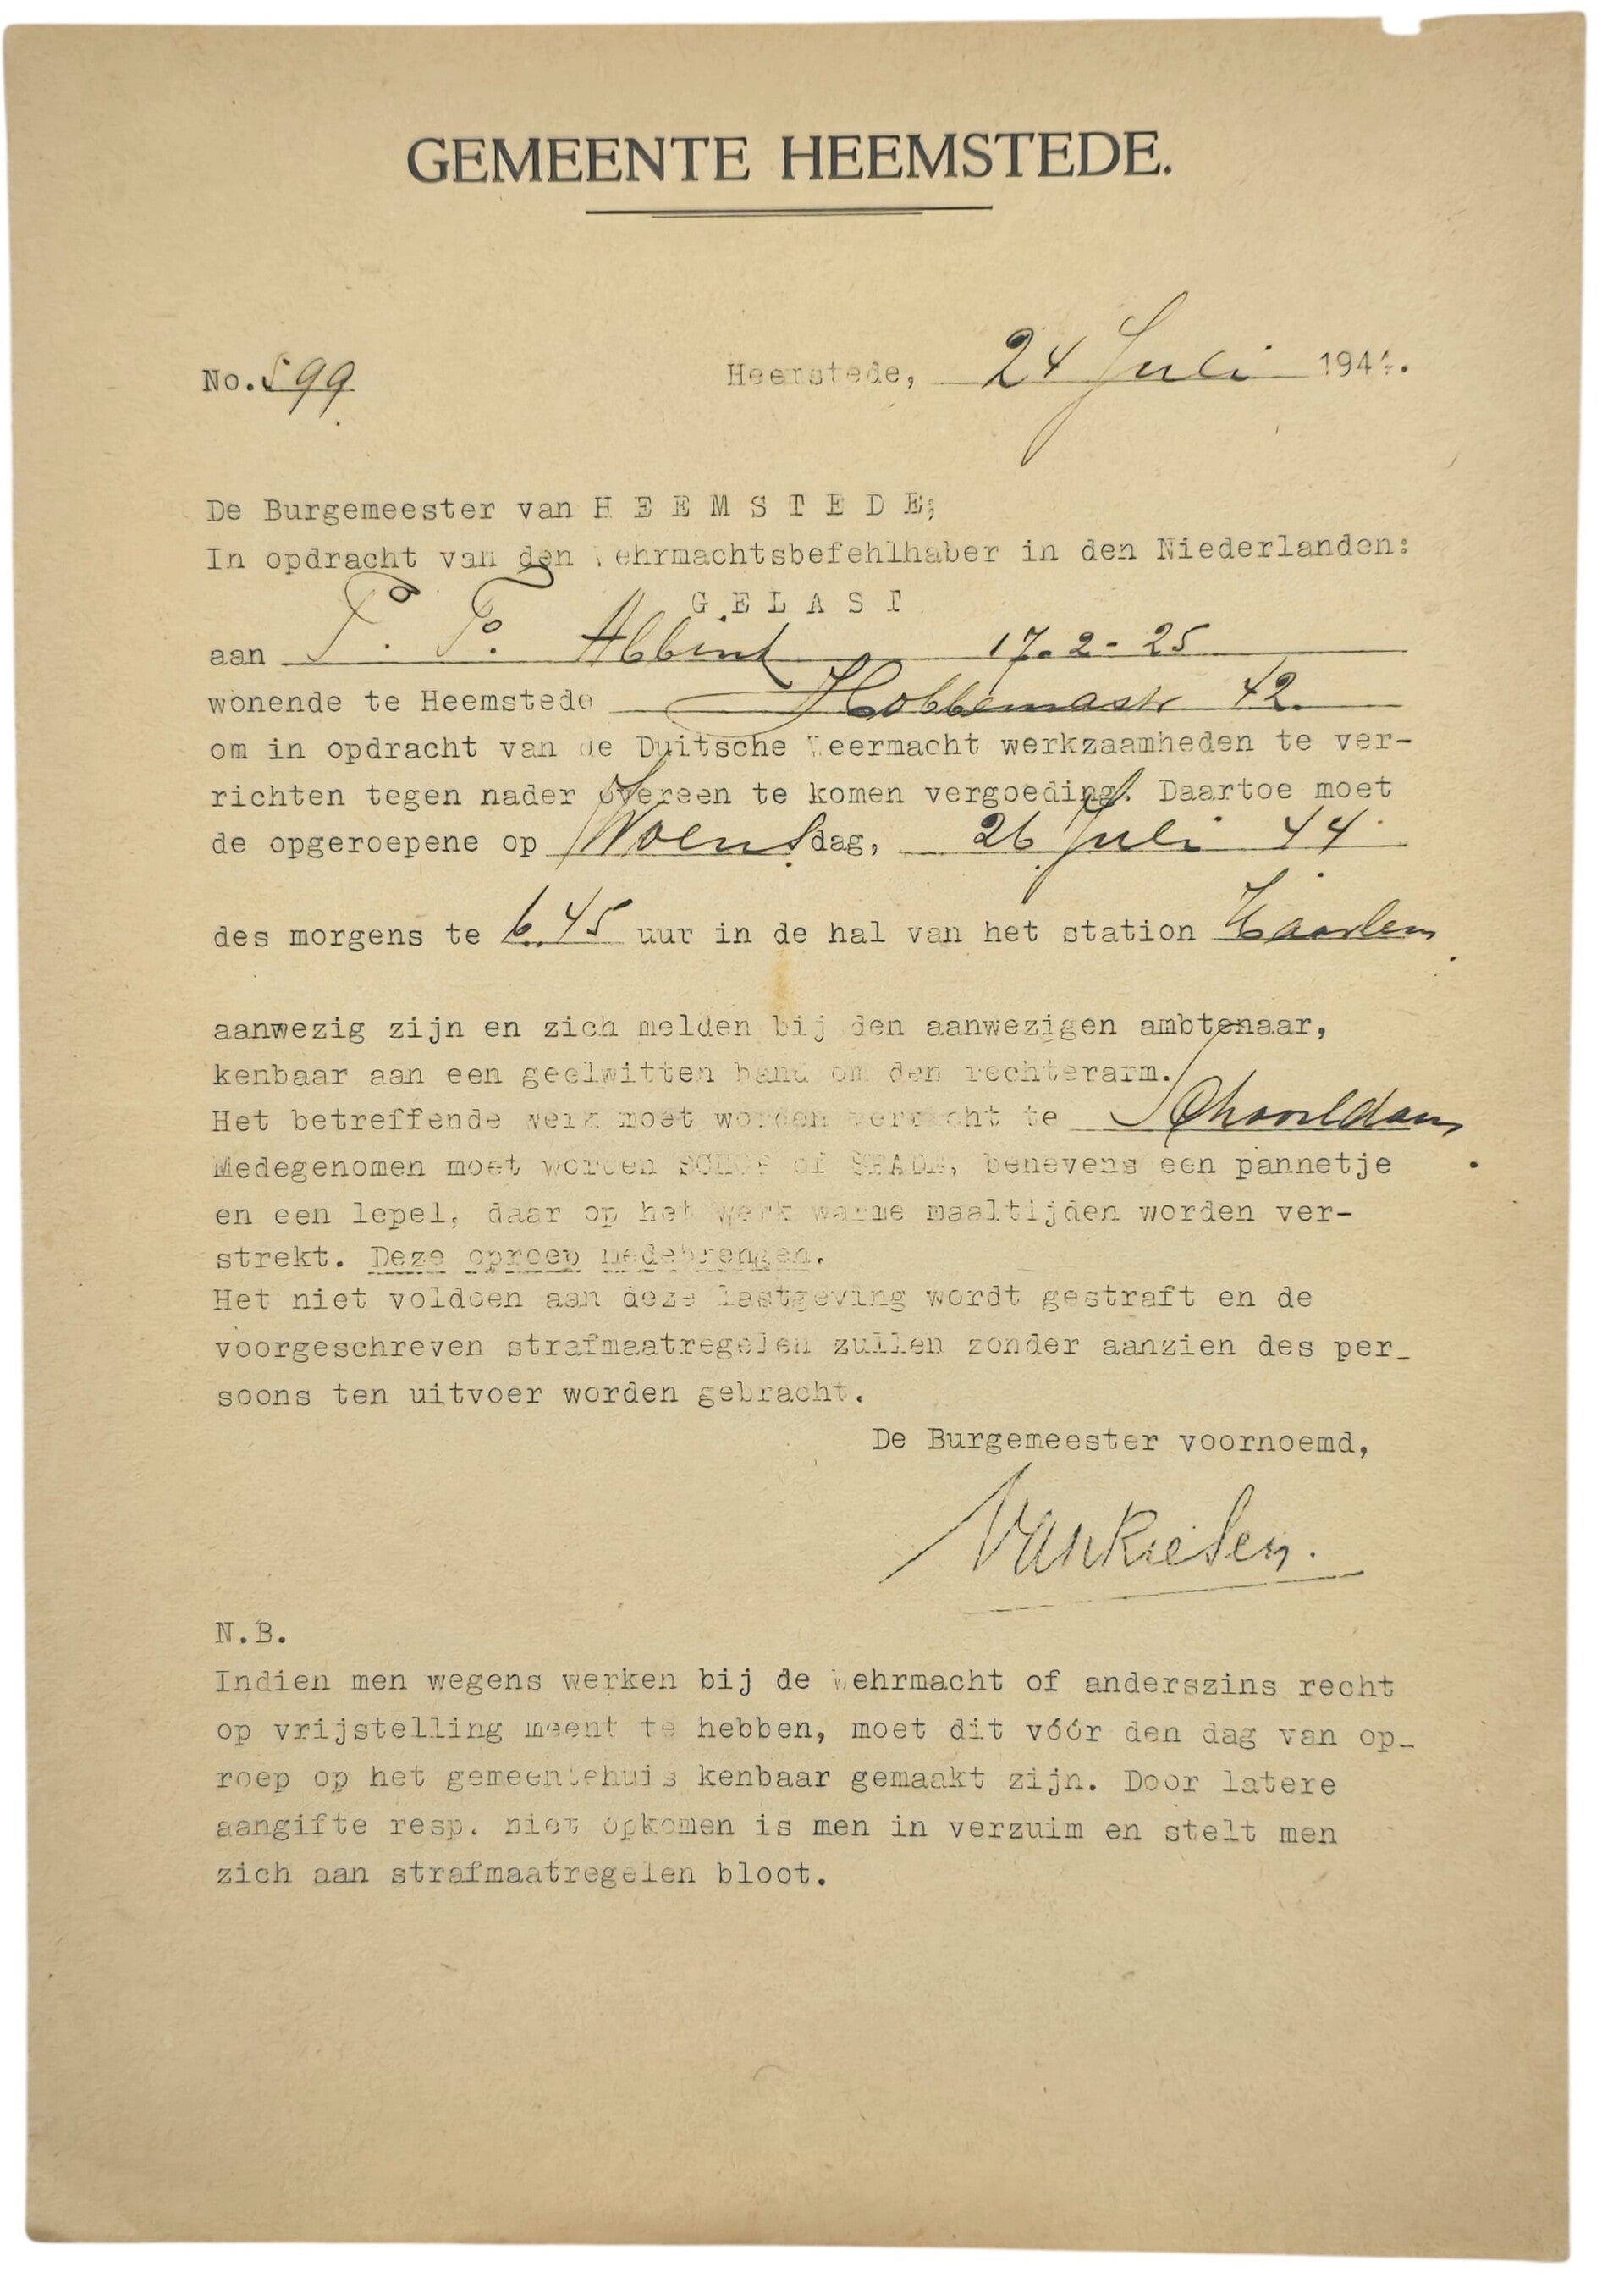 GEMEENTE HEEMSTEDE.
No. 599
Heemstede, 24 Juli 1944.
De Burgemeester van H E E M S T E D E;
In opdracht van den Wehrmachtsbefehlhaber in den Niederlanden:
G E L A S T
aan 17-2-25
wonende te Heemstede Hobbemastr 42.
om in opdracht van de Duitsche Weermacht werkzaamheden te ver-
richten tegen nader overeen te komen vergoeding. Daartoe moet
de opgeroepene op Woensdag, 26 Juli 44
des morgens te 6.45 uur in de hal van het station Haarlem
aanwezig zijn en zich melden bij den aanwezigen ambtenaar,
kenbaar aan een geelwitten band om den rechterarm.
Het betreffende werk moet worden verricht te Schoorldam
Medegenomen moet worden SCHOP of SPADE, benevens een pannetje
en een lepel, daar op het werk warme maaltijden worden ver-
strekt. Deze oproep medebrengen.
Het niet voldoen aan deze lastgeving wordt gestraft en de
voorgeschreven strafmaatregelen zullen zonder aanzien des per_
soons ten uitvoer worden gebracht.
De Burgemeester voornoemd,
N.B.
Indien men wegens werken bij de Wehrmacht of anderszins recht
op vrijstelling meent te hebben, moet dit vóór den dag van op_
roep op het gemeentehuis kenbaar gemaakt zijn. Door latere
aangifte resp. niet opkomen is men in verzuim en stelt men
zich aan strafmaatregelen bloot.